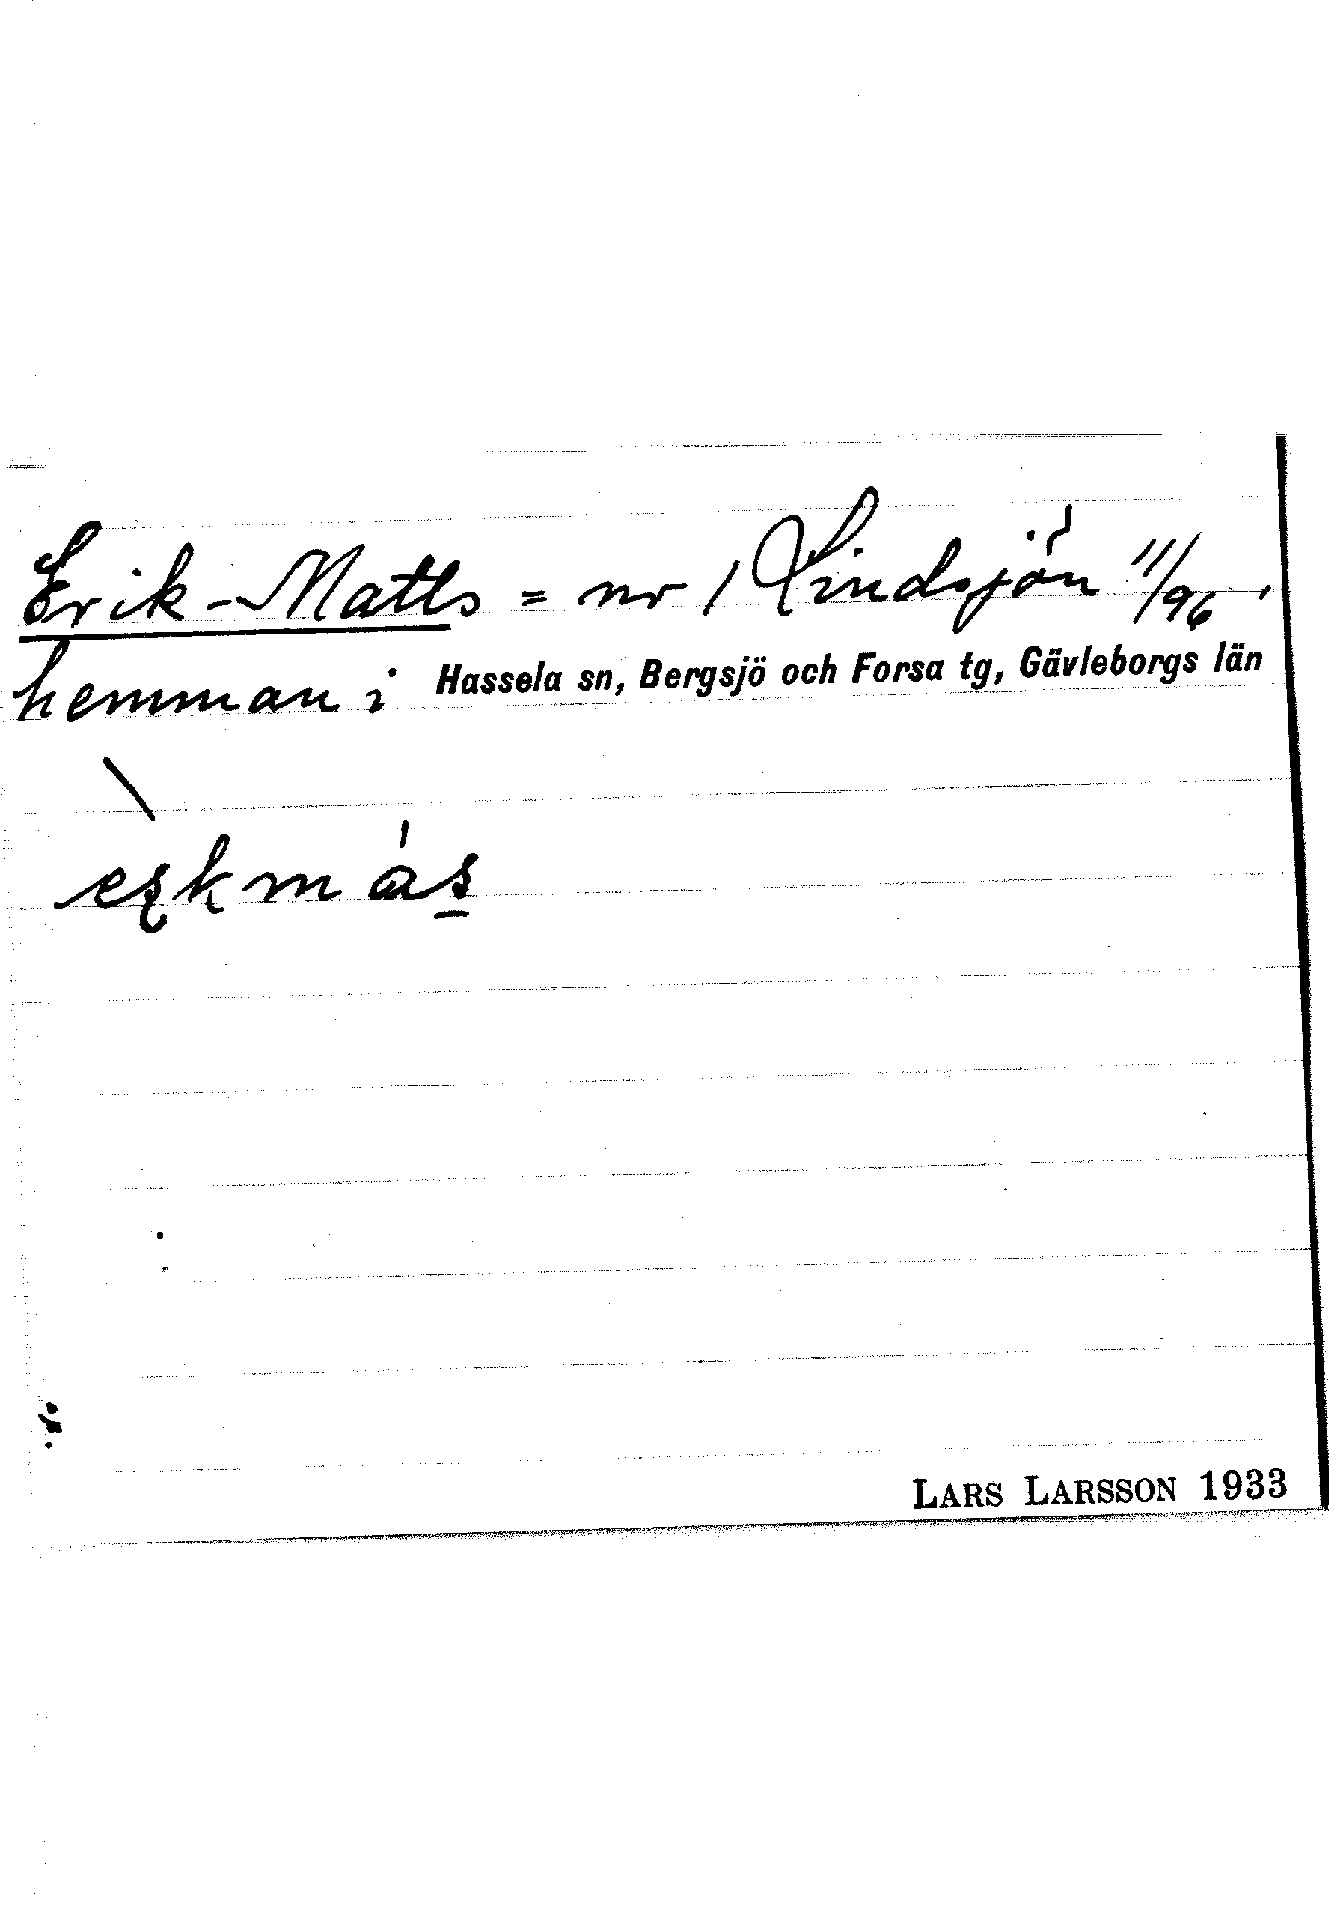 Erik-Matts = nr 1 Lindsjön 11/96
hemman i Hassela sn, Bergsjö och Forsa tg, Gävleborgs län
LARS LARSSON 1933